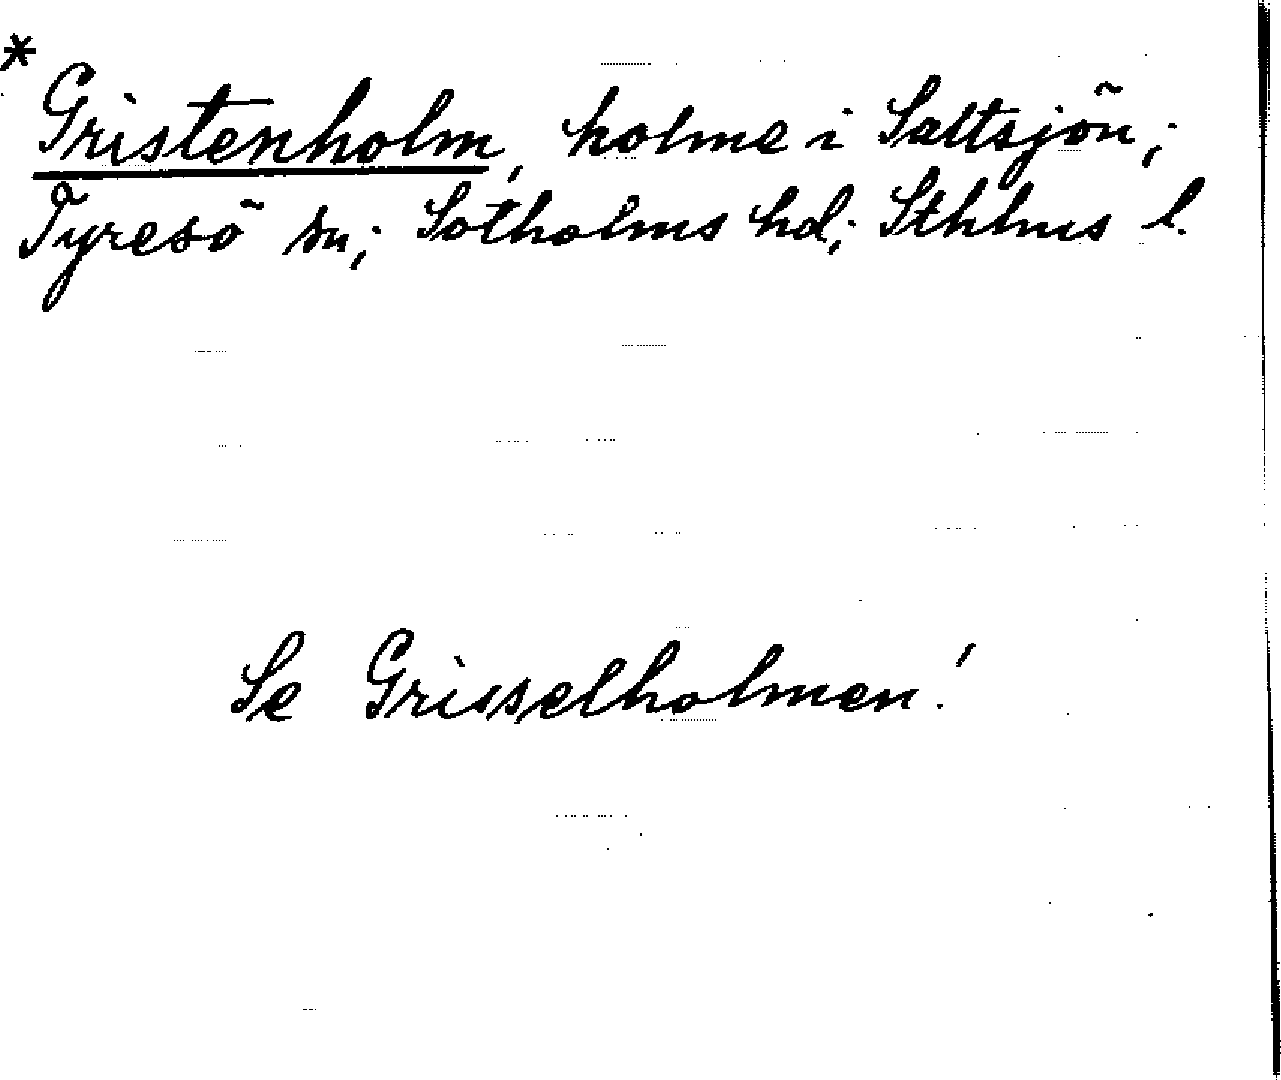 * Gristenholm, holme i Saltsjön;
Tyresö sn; Sotholms hd; Sthlms l.
Se Grisselholmen!